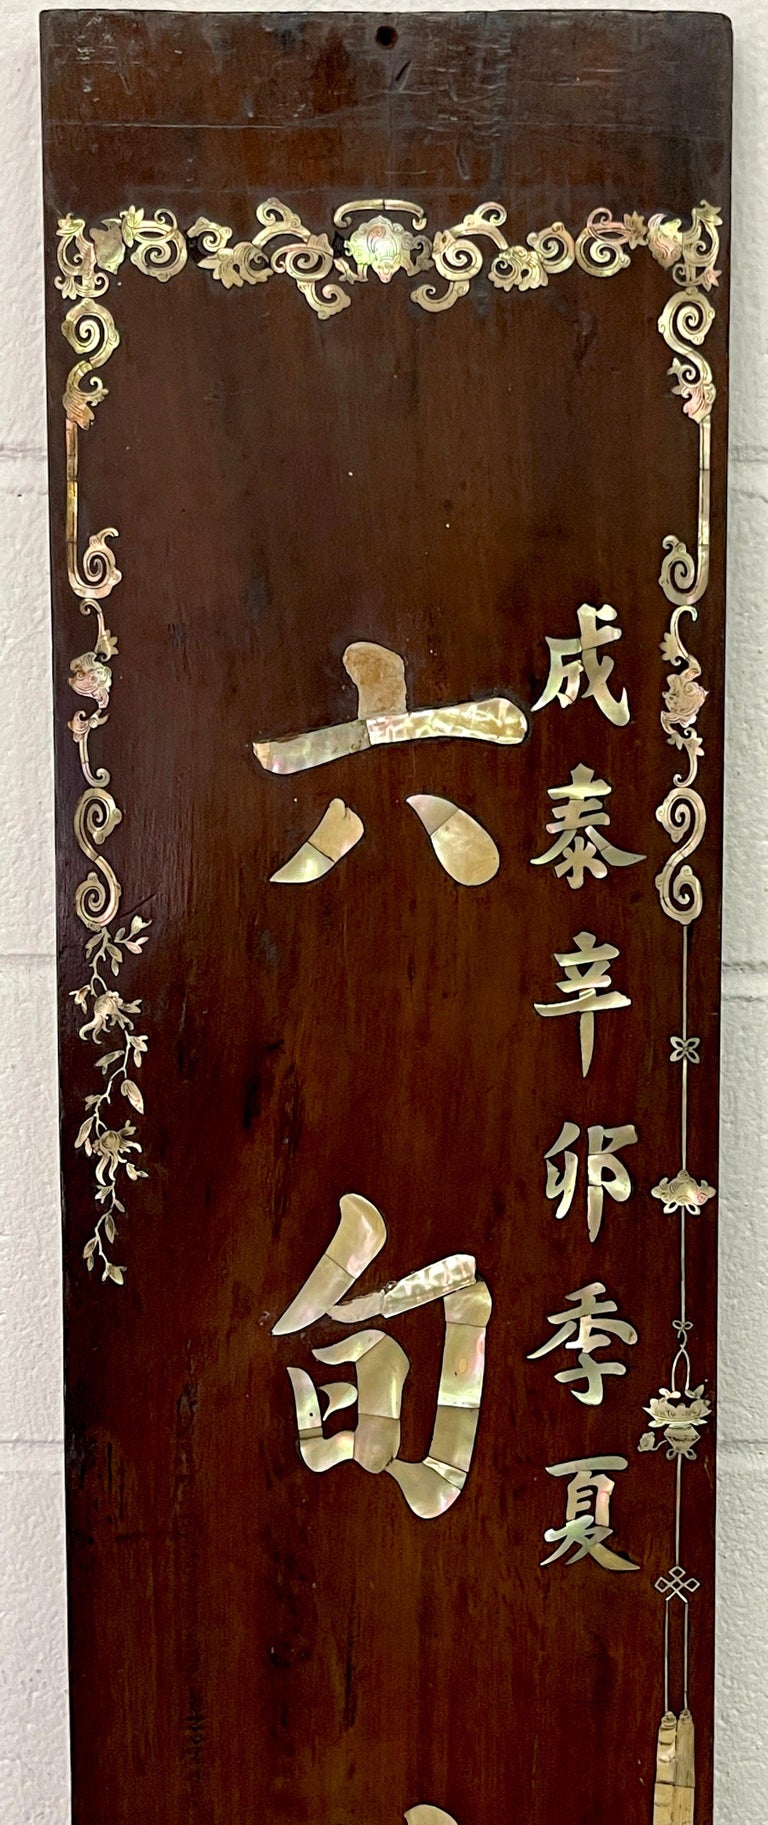 成泰辛卯季夏
六旬